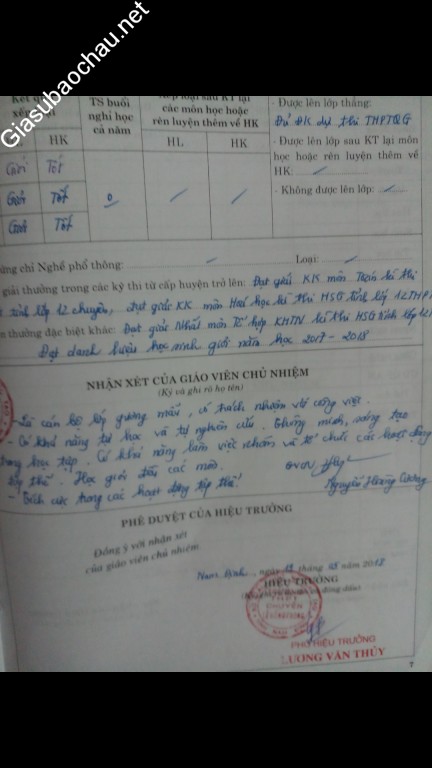 Giasubaochau.net
Kết quả
xếp loại
TS buổi
nghỉ học
cả năm
Xếp loại sau KT lại
các môn học hoặc
rèn luyện thêm về HK
HK
HL
HK
- Được lên lớp thẳng:
Đủ ĐK dự thi THPTQG
- Được lên lớp sau KT lại môn
học hoặc rèn luyện thêm về
HK:
- Không được lên lớp:
Giỏi Tốt
Giỏi Tốt 0
Giỏi Tốt
ứng chỉ Nghề phổ thông: Loại:
giải thưởng trong các kỳ thi từ cấp huyện trở lên: Đạt giải KK môn Toán kì thi
tỉnh lớp 12 chuyên, đạt giải KK môn Hoá học kì thi HSG tỉnh lớp 12 THPT
thưởng đặc biệt khác: Đạt giải Nhất môn Tổ hợp KHTN kì thi HSG tỉnh lớp 12
Đạt danh hiệu học sinh giỏi năm học 2017 - 2018
NHẬN XÉT CỦA GIÁO VIÊN CHỦ NHIỆM
(Ký và ghi rõ họ tên)
- Là cán bộ lớp gương mẫu, có trách nhiệm với công việc.
- Có khả năng tự học và tự nghiên cứu. Thông minh, sáng tạo
trong học tập. Có khả năng làm việc nhóm và tổ chức các hoạt động
tập thể. Học giỏi đều các môn.
- Tích cực trong các hoạt động tập thể.
GVCN
Nguyễn Hoàng Cương
PHÊ DUYỆT CỦA HIỆU TRƯỞNG
Đồng ý với nhận xét
của giáo viên chủ nhiệm
Nam Định, ngày tháng 05 năm 2018
HIỆU TRƯỞNG
PHÓ HIỆU TRƯỞNG
LƯƠNG VĂN THỦY
7